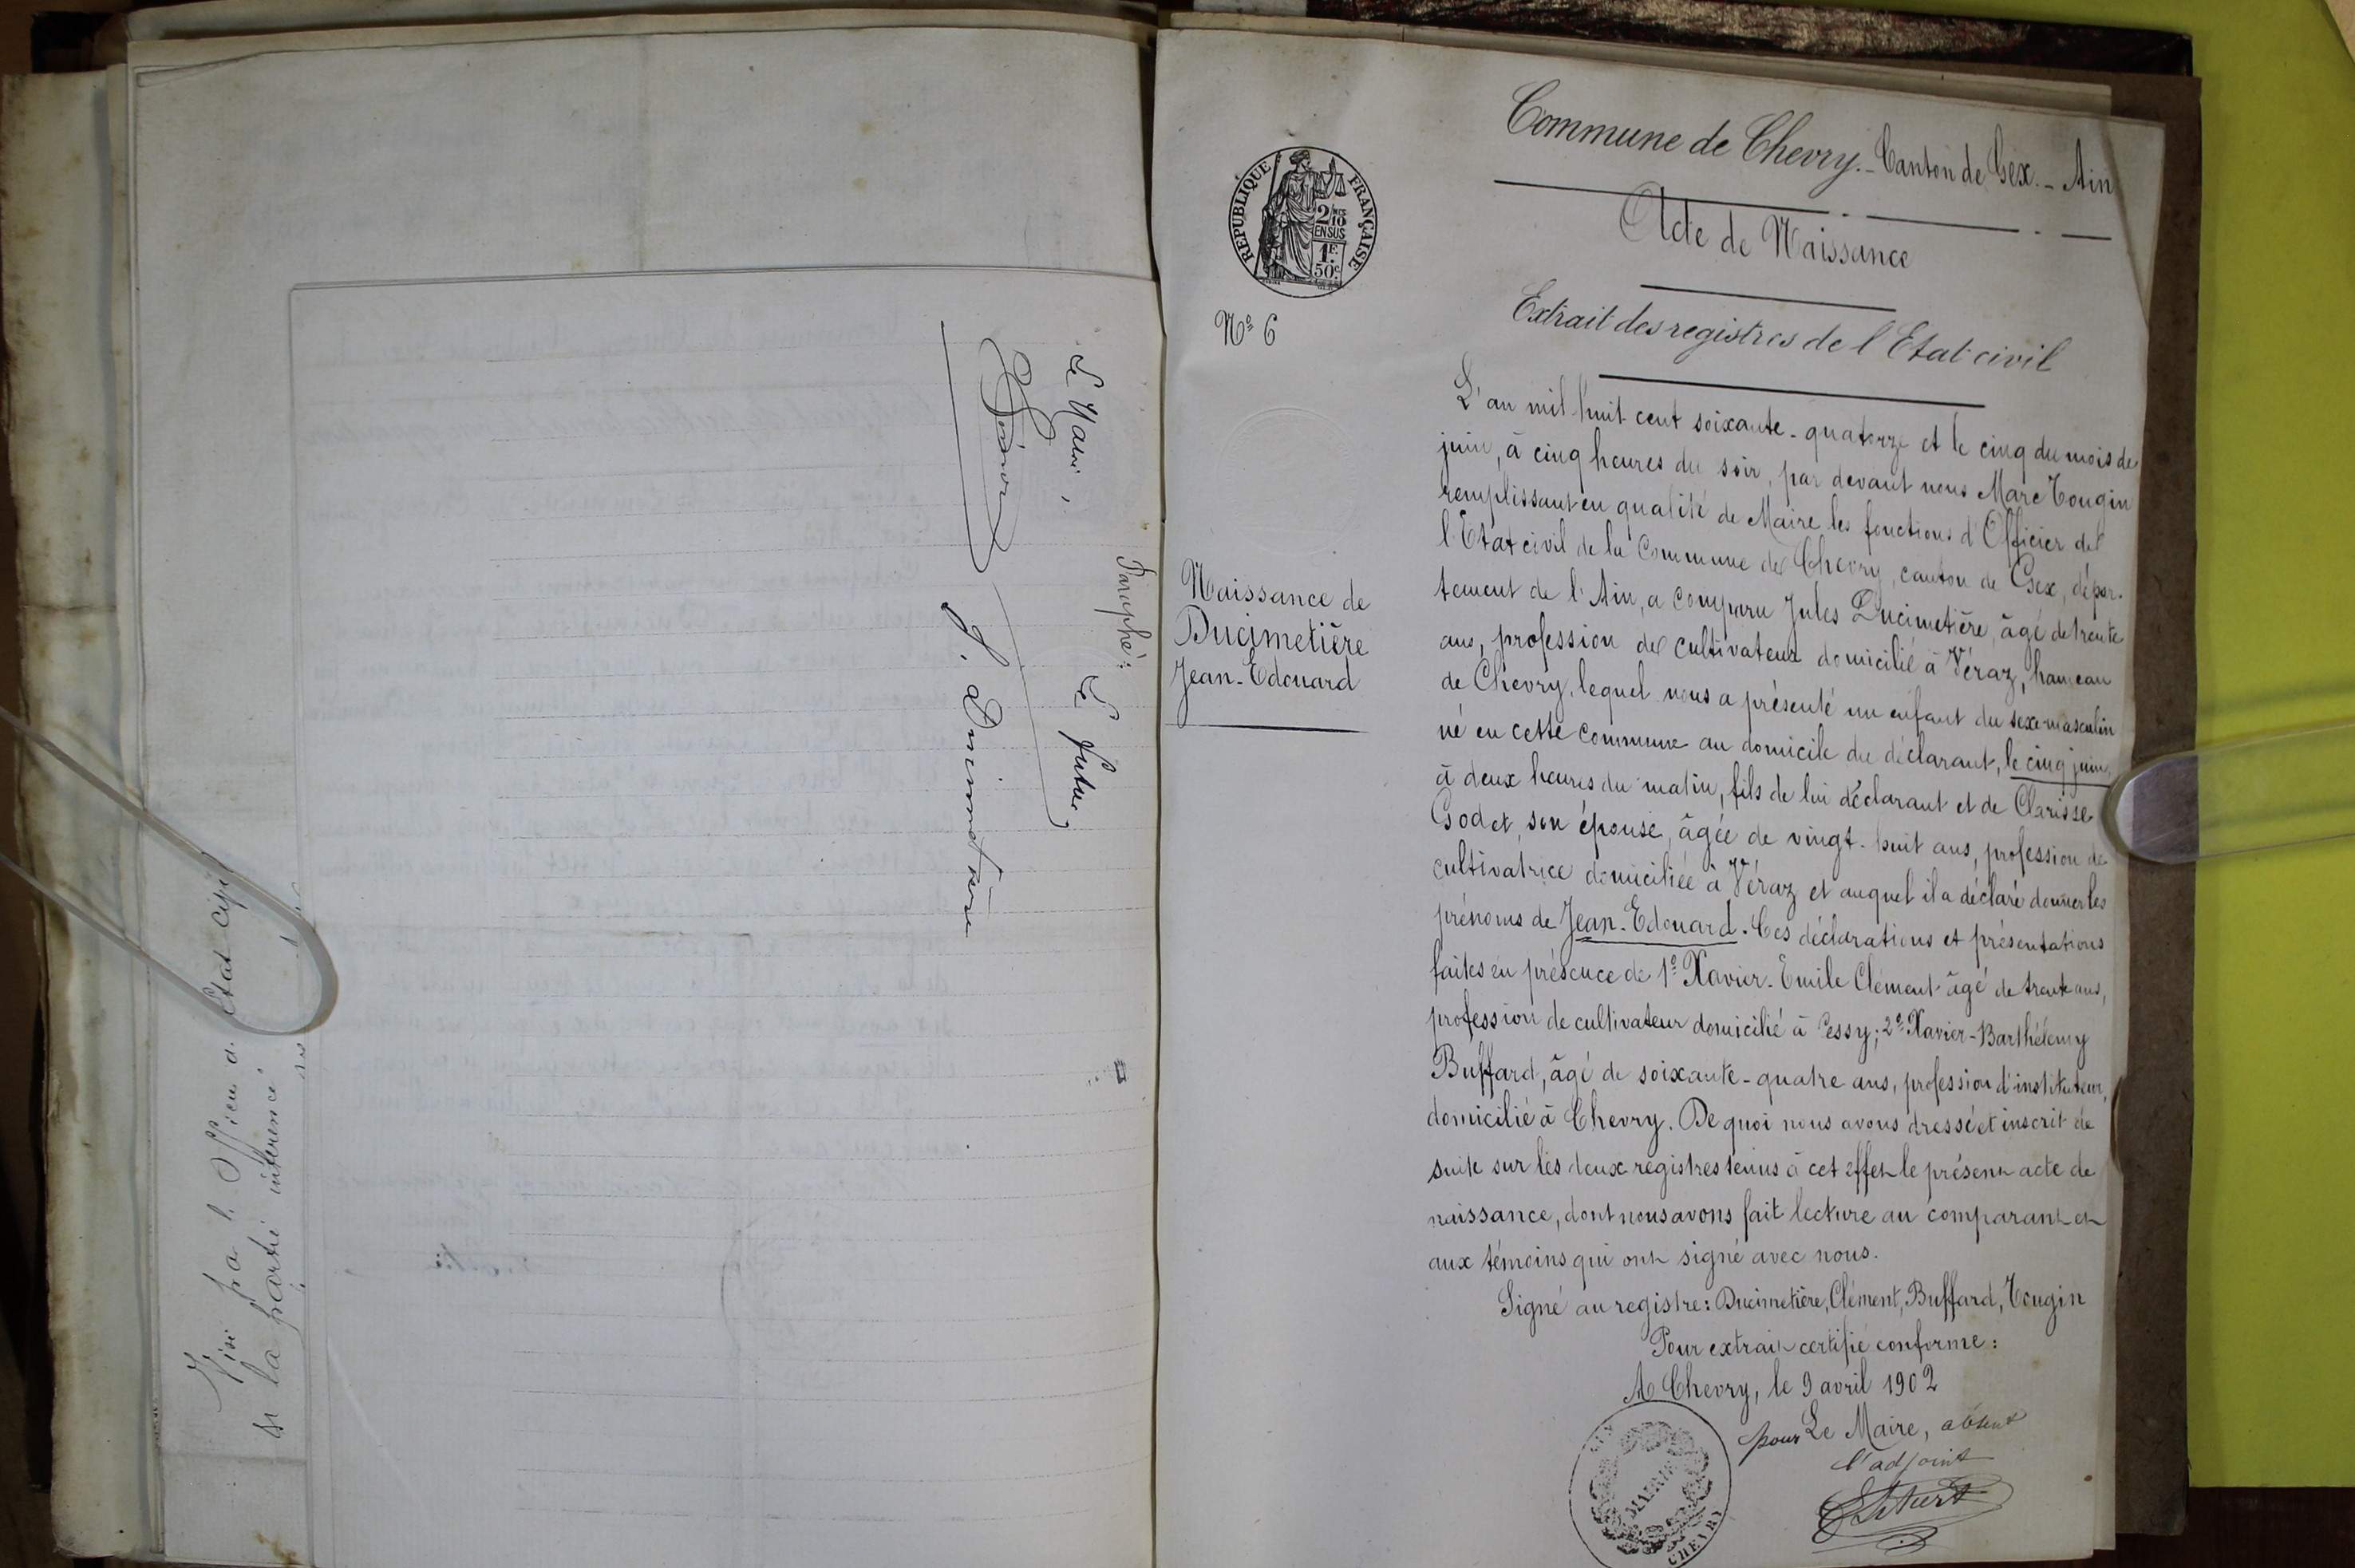 Le Maire,
Paraphé:
Le futur,
J. Ducimetière
Visé par l'Officier d. Etat civil
et la partie intéressée
RÉPUBLIQUE FRANÇAISE
2/10
EN SUS
1F.
50c.
No 6
Naissance de
Ducimetière
Jean-Edouard
Commune de Chevry. - Canton de Gex. - Ain
Acte de Naissance
Extrait des registres de l'Etat-civil
L'an mil huit cent soixante-quatorze et le cinq du mois de
juin, à cinq heures du soir, par devant nous Marc Tougin
remplissant en qualité de Maire les fonctions d'Officier de
l'Etat civil de la Commune de Chevry, canton de Gex, dépar-
tement de l'Ain, a comparu Jules Ducimetière, âgé de trente
ans, profession de cultivateur domicilié à Véraz, hameau
de Chevry, lequel nous a présenté un enfant du sexe masculin
né en cette commune au domicile du déclarant, le cinq juin,
à deux heures du matin, fils de lui déclarant et de Clarisse
Godet, son épouse, âgée de vingt-huit ans, profession de
cultivatrice domiciliée à Véraz et auquel il a déclaré donner les
prénoms de Jean-Edouard. Ces déclarations et présentations
faites en présence de 1o Xavier-Emile Clément âgé de trente ans,
profession de cultivateur domicilié à Cessy; 2o Xavier-Barthélemy
Buffard, âgé de soixante-quatre ans, profession d'instituteur,
domicilié à Chevry. De quoi nous avons dressé et inscrit de
suite sur les deux registres tenus à cet effet le présent acte de
naissance, dont nous avons fait lecture au comparant et
aux témoins qui ont signé avec nous.
Signé au registre: Ducimetière, Clément, Buffard, Tougin
Pour extrait certifié conforme:
A Chevry, le 9 avril 1902
pour Le Maire, absent
l'adjoint
MAIRIE
CHEVRY